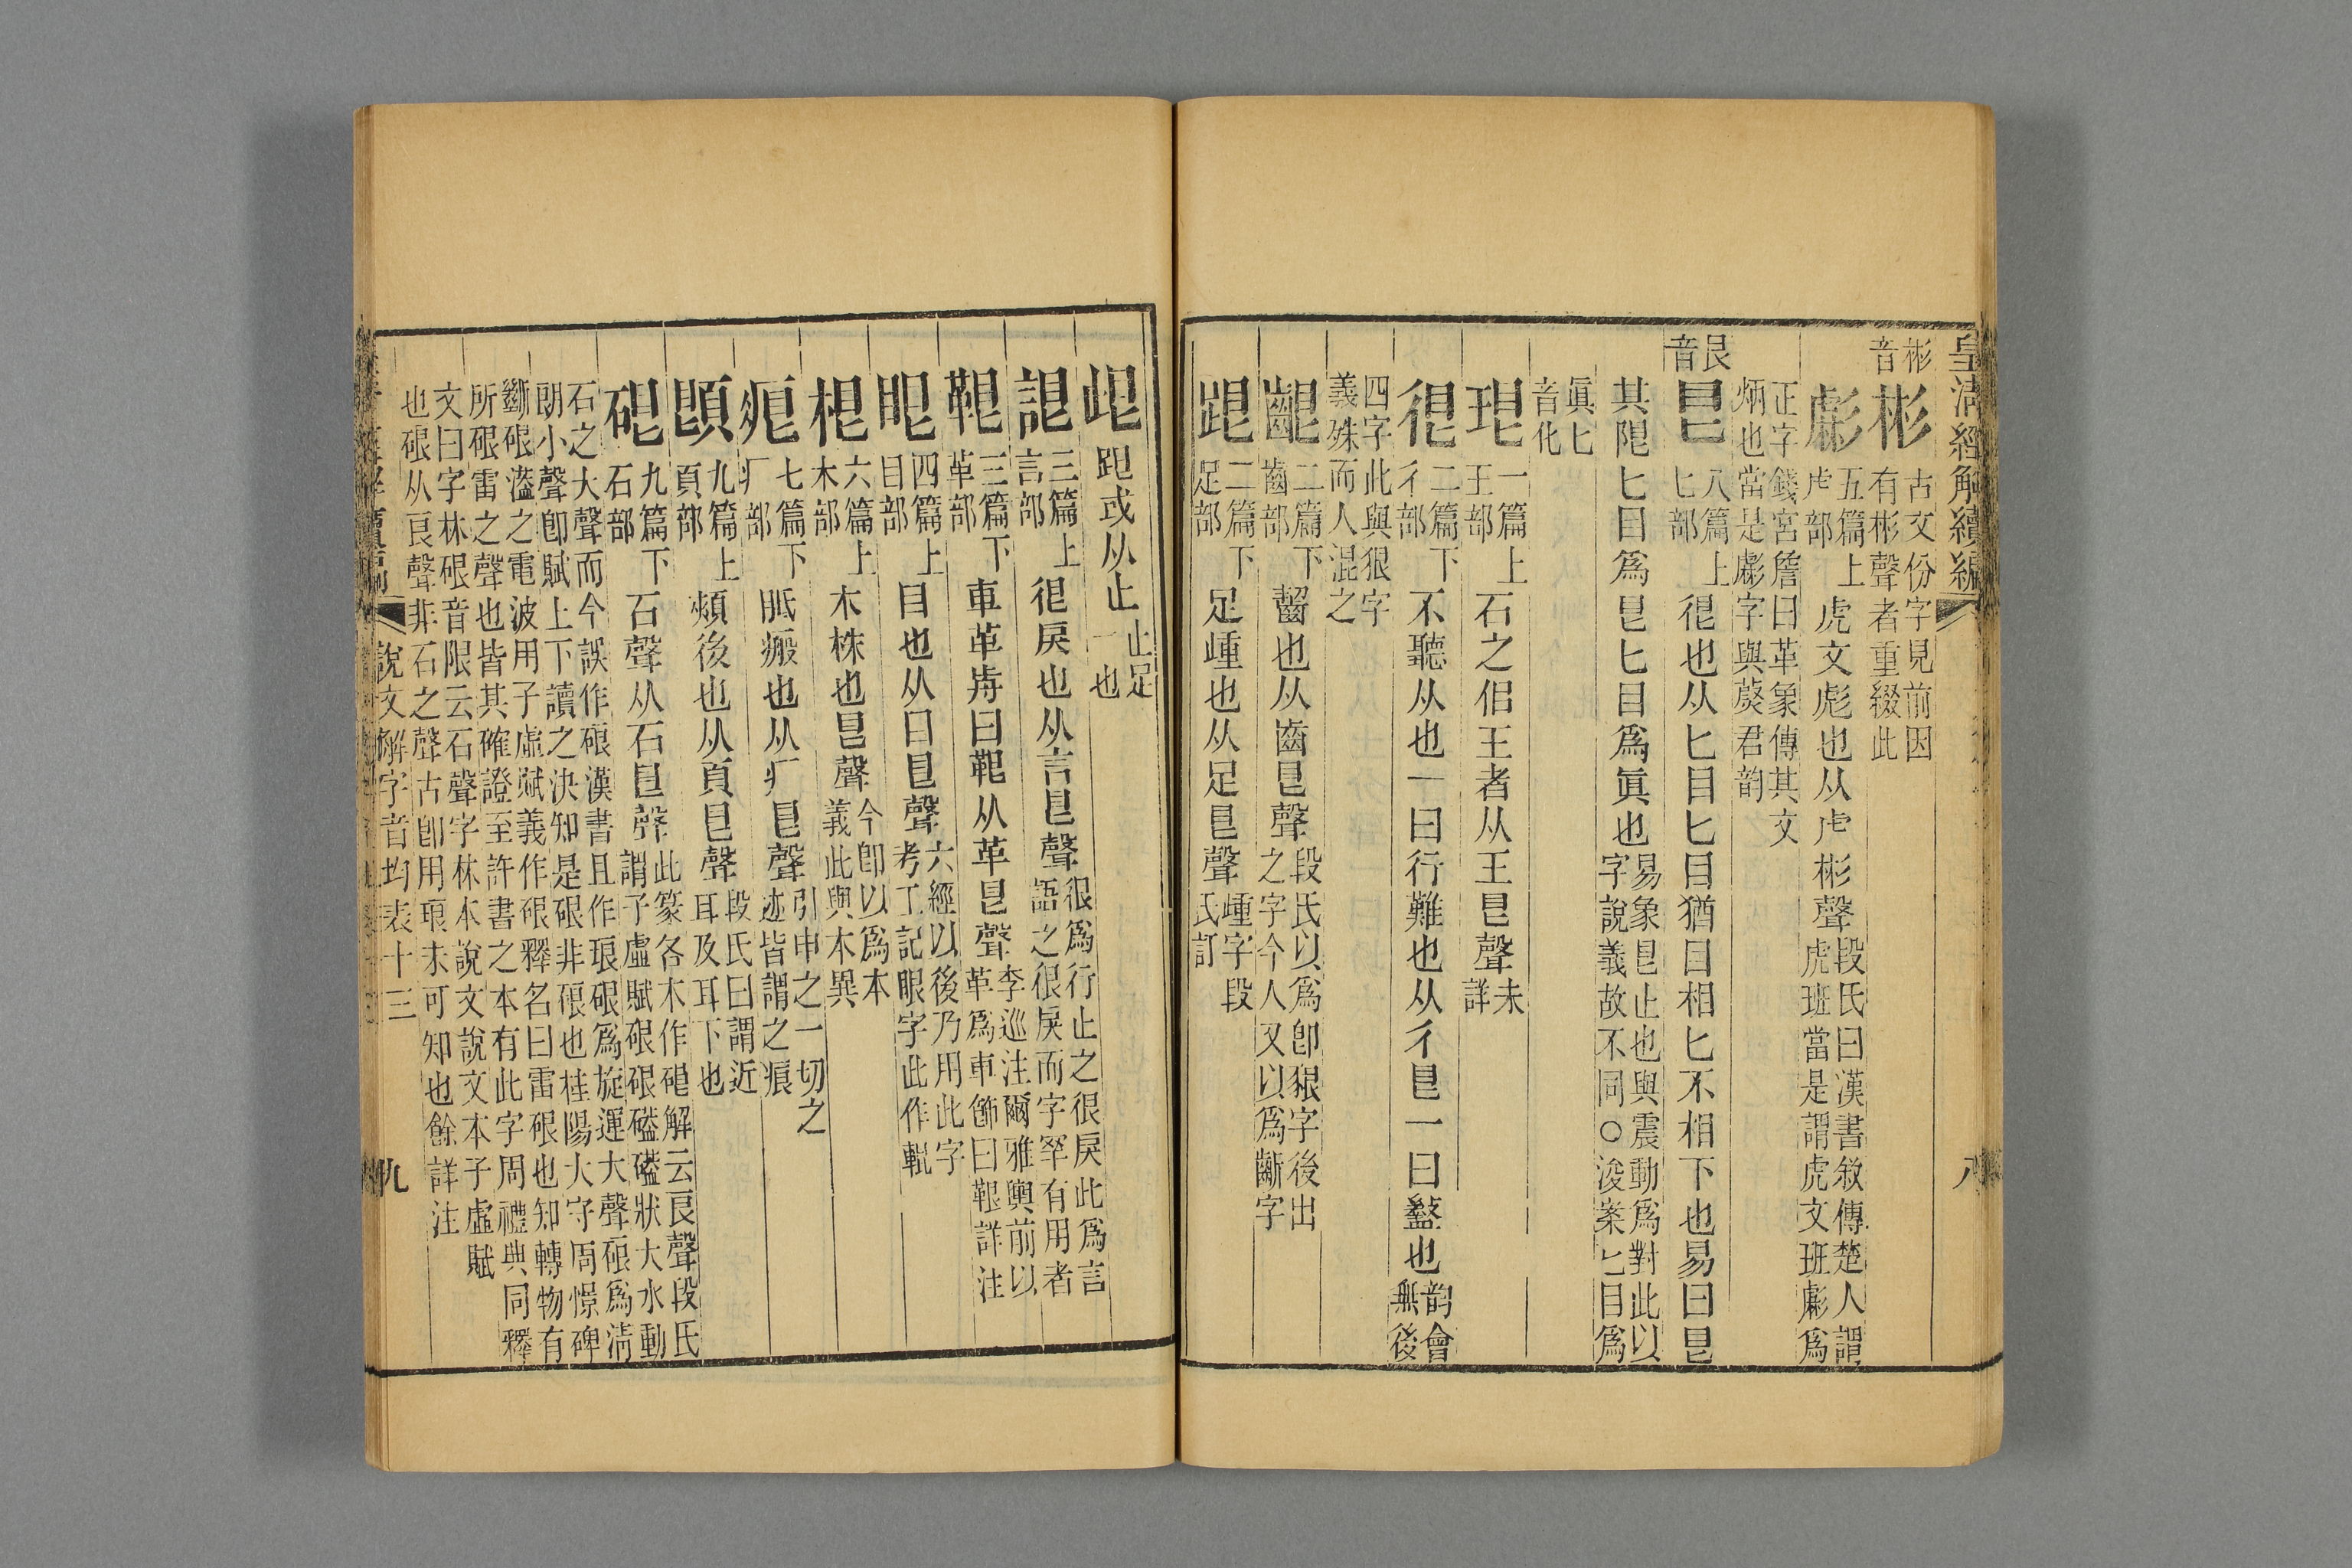 皇清經解續編
八
彬音 彬 古文份字見前因有彬聲者重綴此
彪 五篇上虍部 虎文彪也从虍彬聲 段氏曰漢書敘傳楚人謂虎班當是謂虎文班彪爲
正字錢宮詹曰革象傳其文炳也當是彪字與蔉君韵
艮音 㫔 八篇上匕部 很也从匕目匕目猶目相匕不相下也易曰㫔
其限匕目爲㫔匕目爲眞也 易象㫔止也與震動爲對此以字說義故不同○浚案匕目爲
眞匕音化
珢 一篇上王部 石之佀王者从王㫔聲 未詳
很 二篇下彳部 不聽从也一曰行難也从彳㫔一曰盭也 韵會無後
四字此與狠字義殊而人混之
齦 二篇下齒部 齧也从齒㫔聲 段氏以爲卽豤字後出之字今人又以爲齗字
跟 二篇下足部 足歱也从足㫔聲 歱字段氏訂
䟴 跟或从止 止足一也
詪 三篇上言部 很戾也从言㫔聲 很爲行止之很戾此爲言語之很戾而字罕有用者
䩰 三篇下革部 車革前曰䩰从革㫔聲 李巡注爾雅輿前以革爲車飾曰䩰詳注
眼 四篇上目部 目也从目㫔聲 六經以後乃用此字考工記眼字此作輥
根 六篇上木部 木株也㫔聲 今卽以爲本義此與木異
痕 七篇下疒部 胝瘢也从疒㫔聲 引申之一切之迹皆謂之痕
頣 九篇上頁部 頰後也从頁㫔聲 段氏曰謂近耳及耳下也
硍 九篇下石部 石聲从石㫔聲 此篆各本作硍解云艮聲段氏謂子虛賦硍硍礚礚狀大水動
石之大聲而今誤作硠漢書且作琅硍爲旋運大聲硠爲淸朗小聲卽賦上下讀之決知是硍非硠也桂陽大守周憬碑
斷硍溘之電波用子虛賦義作硍釋名曰雷硍也知轉物有所硍雷之聲也皆其確證至許書之本有此字周禮典同釋
文曰字林硍音限云石聲字林本說文說文本子虛賦也硠从良聲非石之聲古卽用琅未可知也餘詳注
說文解字音均表十三
九